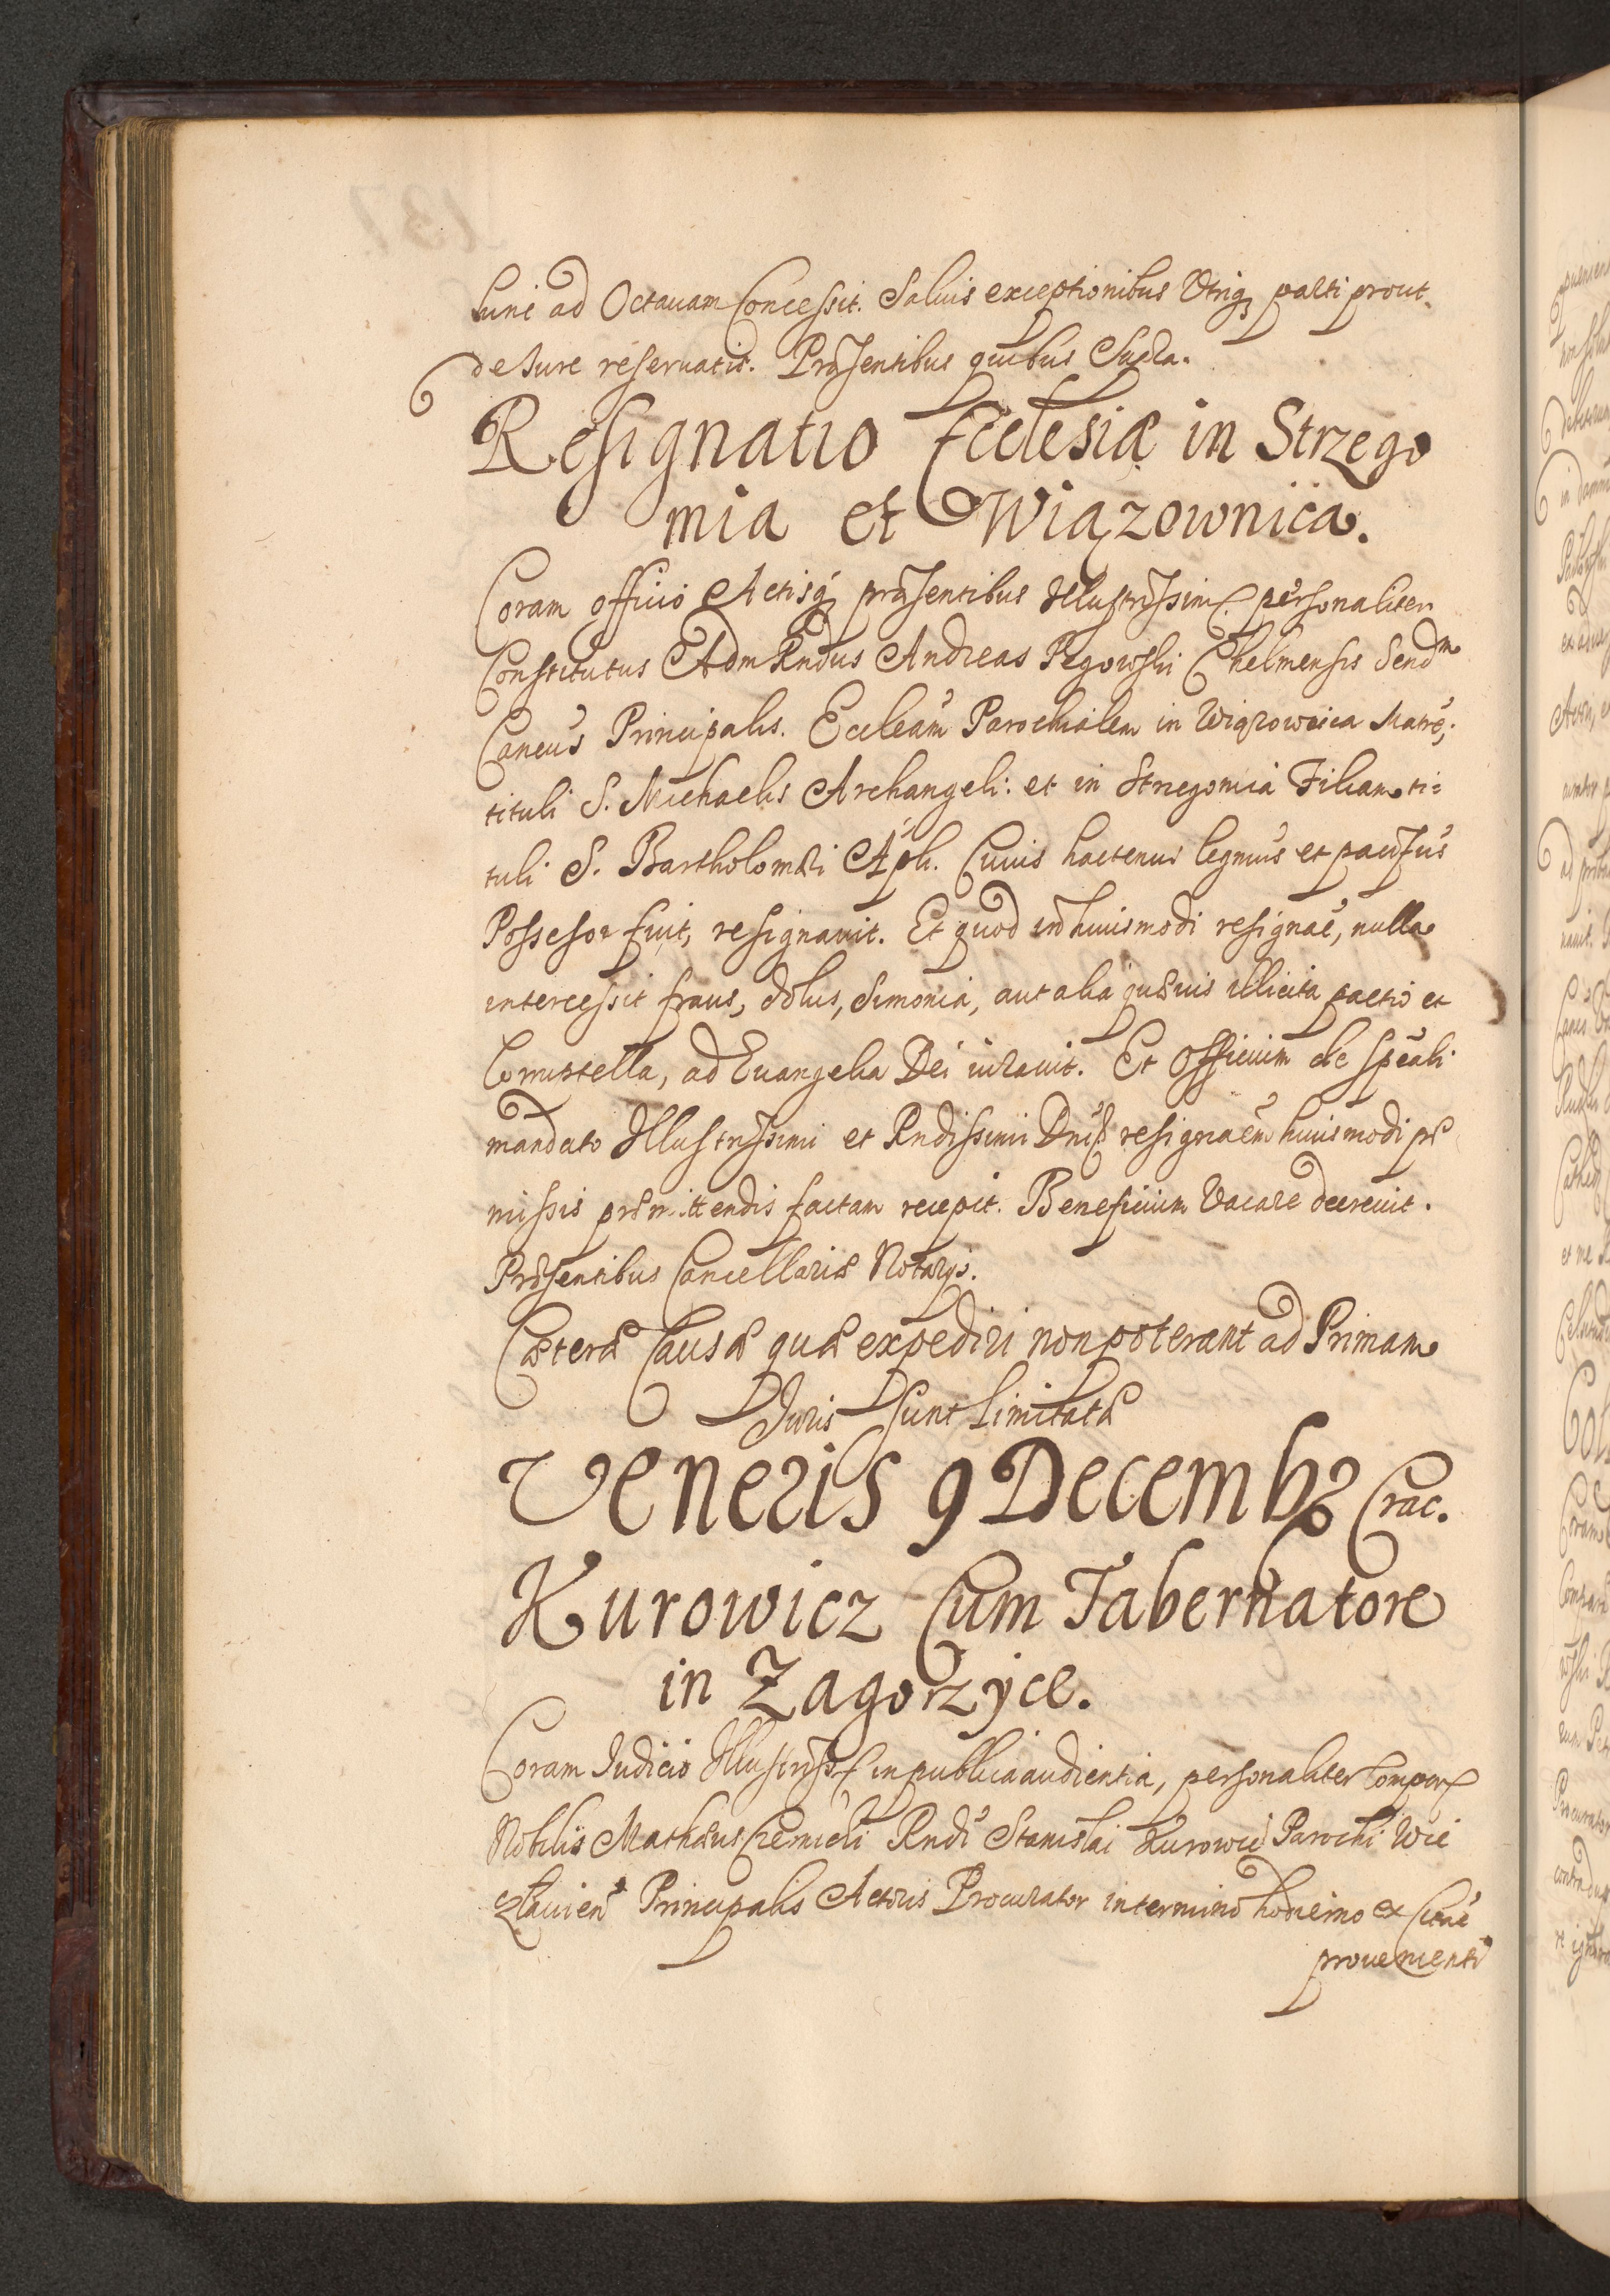 suni ad Octauam Concessit. Saluis exceptionibus Utriq; parti prout
de Jure reseruatis. Præsentibus quibus Supra.
Resignatio Ecclesiæ in Strzego
mia et Wiązownica.
Coram officio Actisq; præsentibus Illustrissimi personaliter
Constitutus Adm Rndus Andreas Pęgowski Chelmensis Sendm
Cancus Principalis. Eccleam Parochialem in Wiązownica Matre,
tituli S. Michaelis Archangeli: et in Strzegomia Filiam ti=
tuli S. Bartholomæi Apli. Cuius hactenus legmus et pacifus
Possessor fuit, resignauit. Et quod in huiusmodi resignae, nulla
intercessit fraus, dolus, Simonia, aut alia quæuis illicita pactio et
Corruptella, ad Euangelia Dei iurauit. Et Officium de speali
mandato Illustrissimi et Rndissimi Dni resignaem huiusmodi præ
missis præmittendis factam recepit. Beneficium Vacare decreuit.
Præsentibus Cancellariæ Notarijs.
Cæteræ Causæ quæ expediri non poterant ad Primam
Juris Sunt Limitatæ
Veneris 9 Decembr Crac.
Kurowicz Cum Tabernatore
in Zagorzyce.
Coram Judicio Illustriss in publica audientia, personaliter Compar
Nobilis Mathæus Czernicki Rndi Stanislai Kurowic Parochi Wie
czlauien Principalis Actoris Procurator in termino hodierno ex Citae
prouenienti